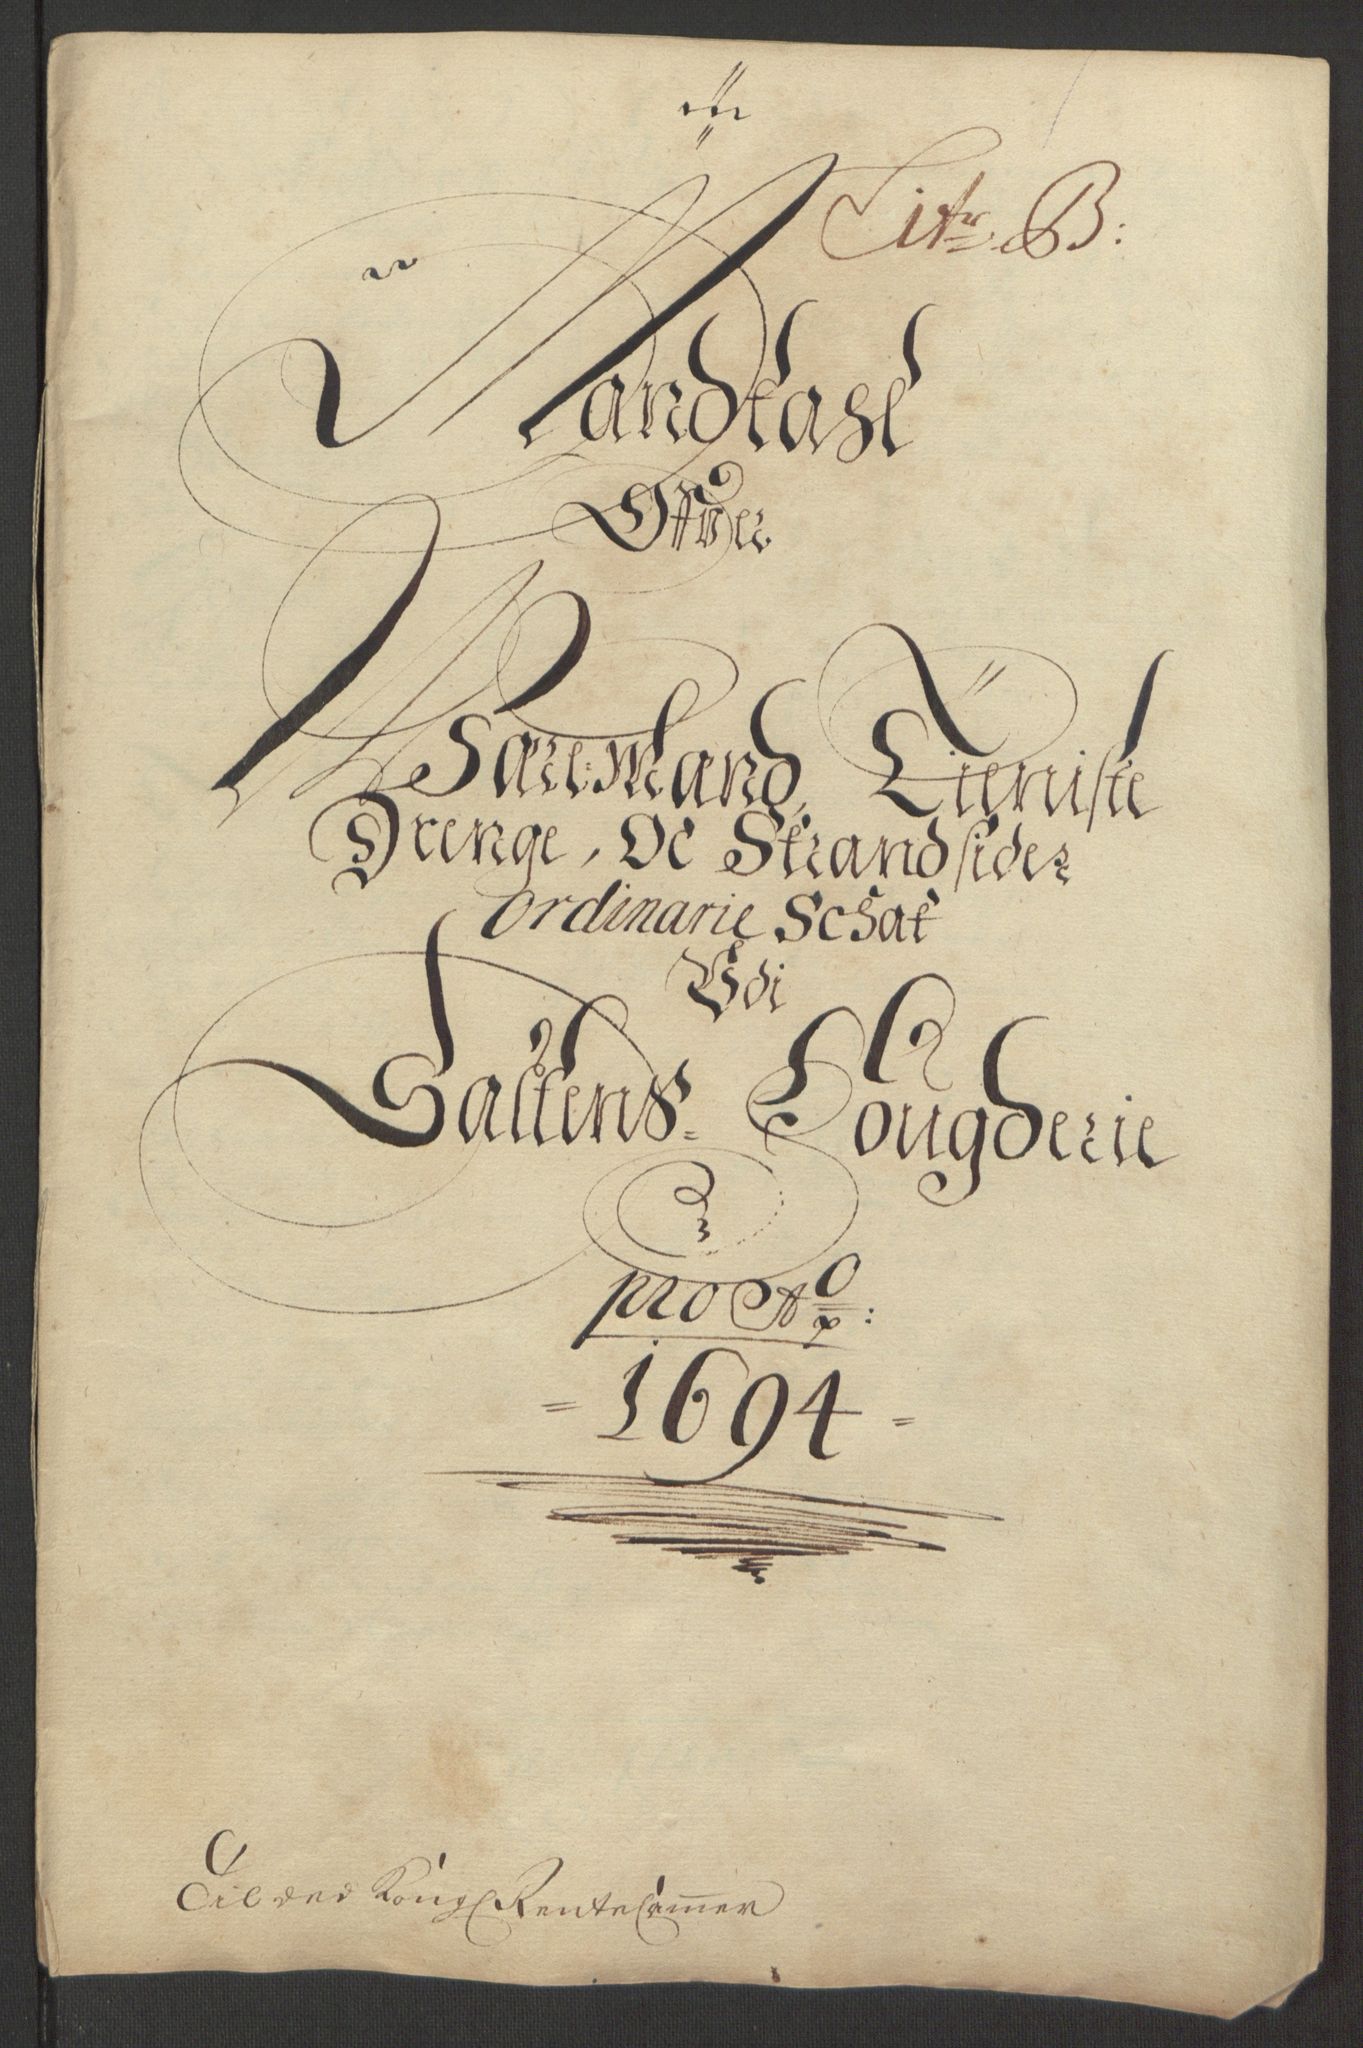 Litr B:
Mandtahl
Offver
Huusmænd, Tieniste
Drenge, Oc Strandsider
ordinarie Schat
Udi
Saltens Fougderie
pro Ao:
1694
Til ded Kongl Rentekammer